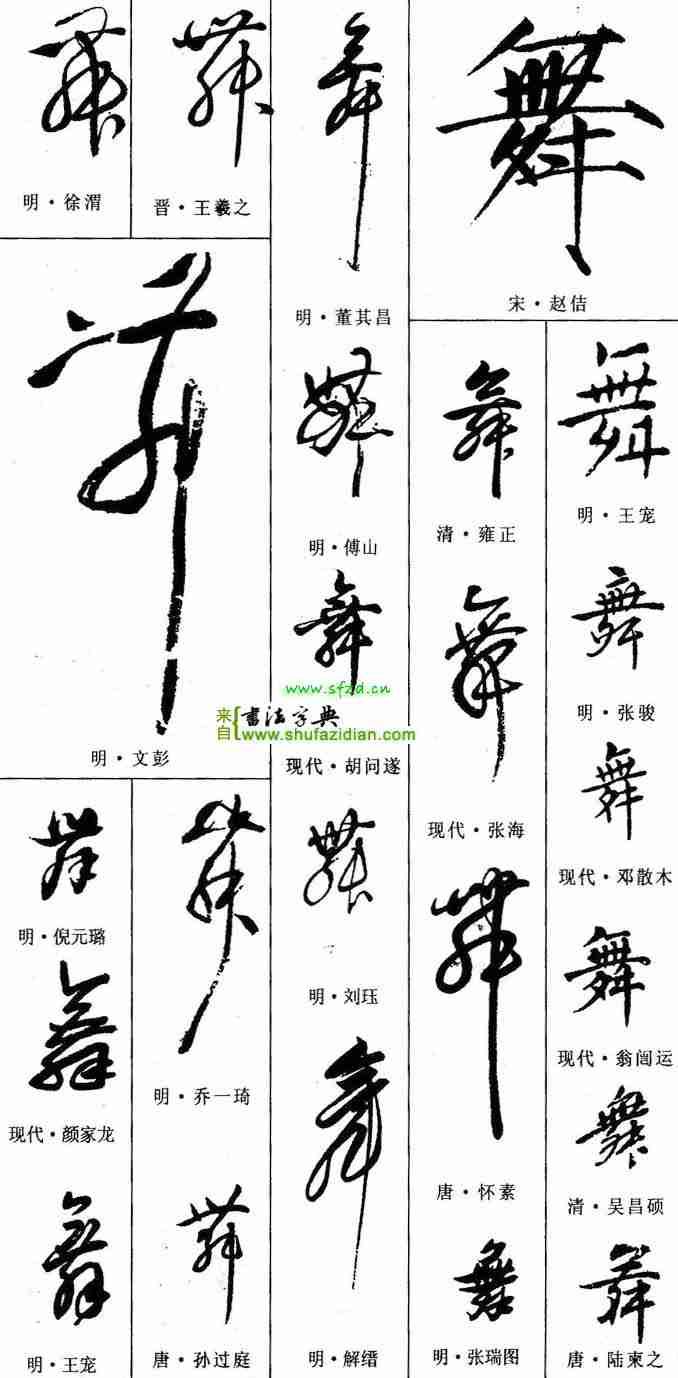 舞
明·徐渭
舞
晋·王羲之
舞
明·董其昌
舞
宋·赵佶
舞
明·文彭
舞
明·傅山
舞
清·雍正
舞
明·王宠
舞
www.sfzd.cn
来自{书法字典
www.shufazidian.com
现代·胡问遂
舞
现代·张海
舞
明·张骏
舞
现代·邓散木
舞
明·倪元璐
舞
明·乔一琦
舞
明·刘珏
舞
唐·怀素
舞
现代·翁闿运
舞
现代·颜家龙
舞
明·解缙
舞
清·吴昌硕
舞
明·王宠
舞
唐·孙过庭
舞
明·张瑞图
舞
唐·陆柬之